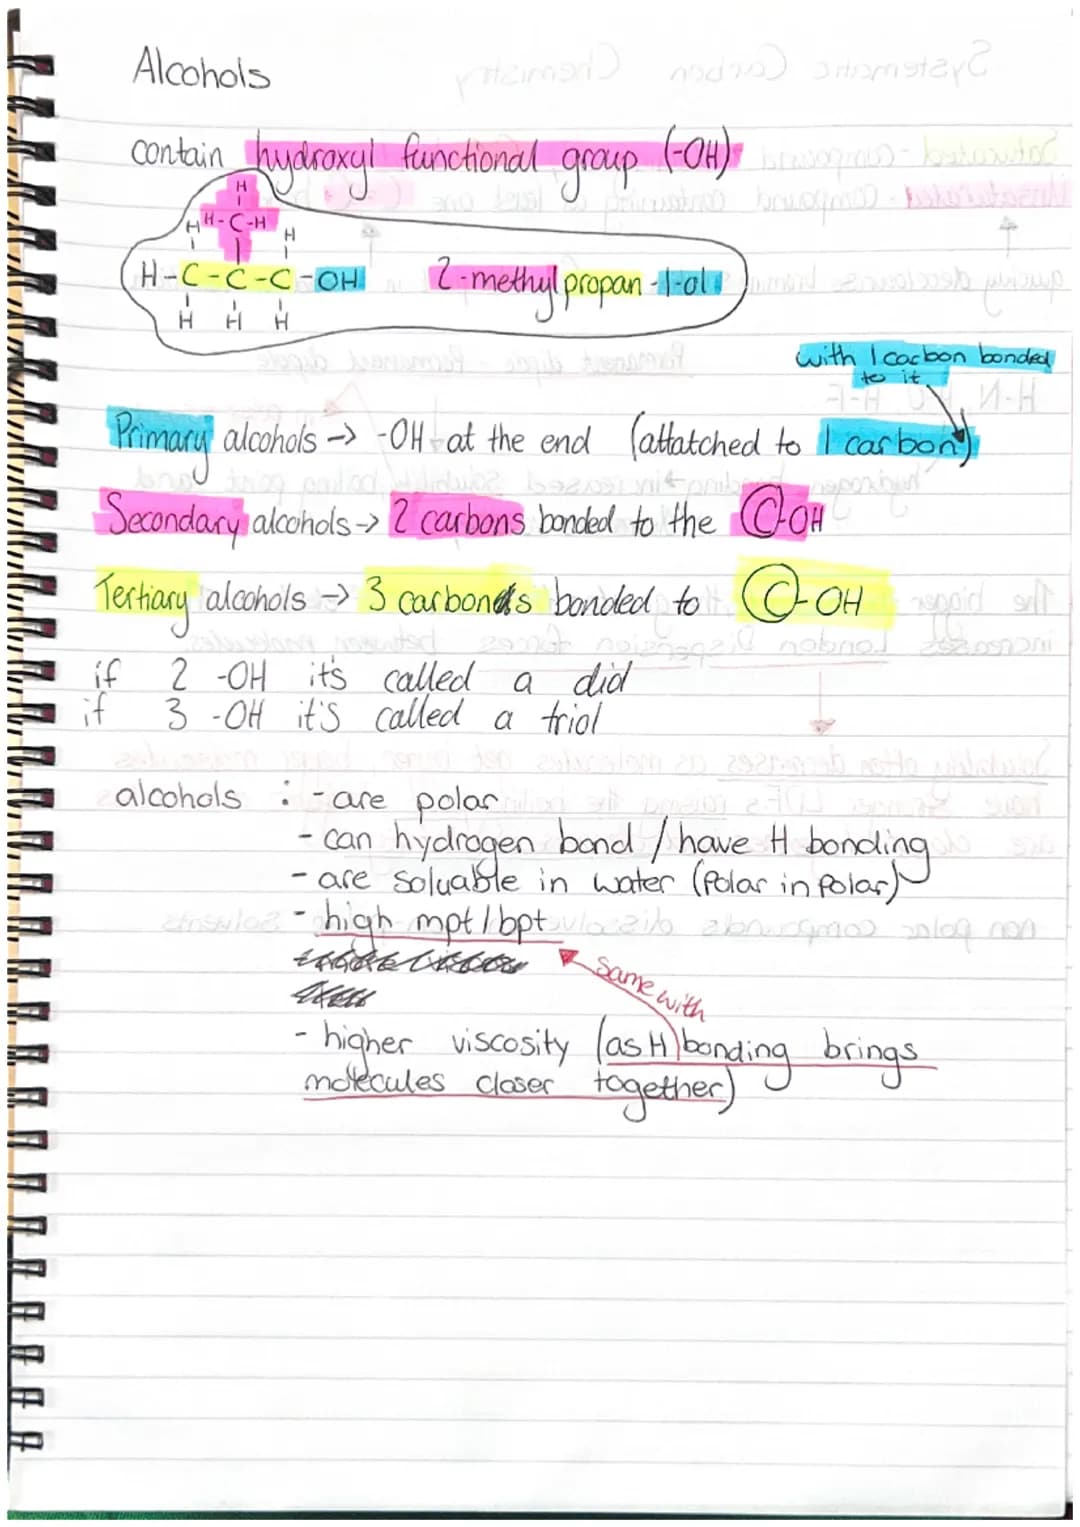 Alcohols
contain hydroxyl functional group (-OH)
H
H-C-H
H H
H-C-C-C-OH 2-methylpropan-1-ol
H H H
with 1 carbon bonded
to it
Primary alcohols -> -OH at the end (attatched to 1 carbon)
Secondary alcohols -> 2 carbons bonded to the C-OH
Tertiary alcohols -> 3 carbons bonded to C-OH
if 2 -OH it's called a diol
if 3 -OH it's called a triol
alcohols : - are polar
- can hydrogen bond / have H bonding
- are soluable in water (Polar in Polar)
- high mpt/bpt
same with
- higher viscosity (as H bonding brings
molecules closer together)